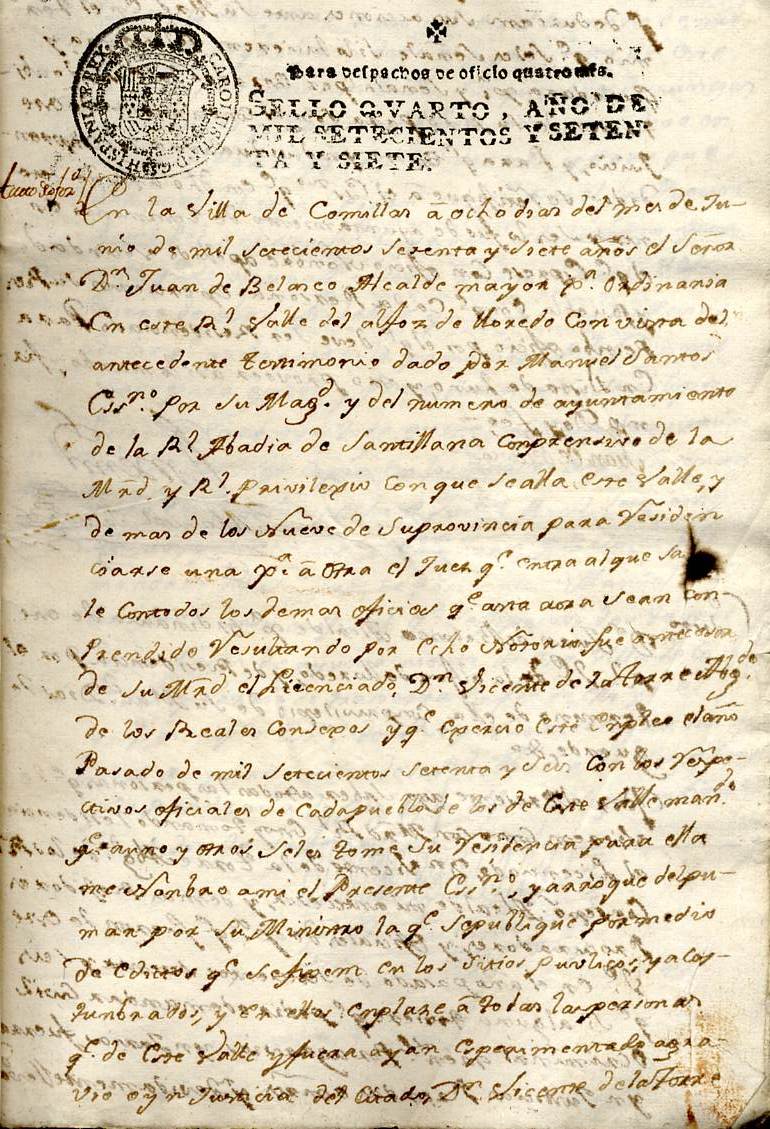 Para despachos de oficio quatro mrs.
SELLO QVARTO, AÑO DE
MIL SETECIENTOS Y SETEN-
TA Y SIETE.
CAROLUS III D G HISPANIAR REX
En la Villa de Comillas â ocho dias del mes de Ju-
nio de mil setecientos setenta y siete años el Señor
Dn. Juan de Belasco Alcalde mayor ps. Ordinaria
En este Rl. Valle del alfoz de lloredo Con vista del
antecedente testimonio dado por Manuel Santos
Essno. por Su Magd. y del numero de ayuntamiento
de la Rl. Abadia de Santillana Conprensivo de la
Mrd y Rl. Privilexio Con que sealla este Valle, y
de mas de los Nueve de Suprovincia para Residen
ciarse una ps. â otra el Juez qe. entra al que sa
le Contodos los demas oficios qe. asta aora sean con-
prendido Resultando por Echo Notorio fue antecesor
de su Mrd el Licenciado, Dn. Vicente de la Torre Abgdo.
de los Reales Consejos y qe. Exercio Este Enpleo el año
Pasado de mil setecientos setenta y Seis Con los Respe-
ctivos oficiales de Cada pueblo de los de Este Valle mando.
qe. auno y otros Seles tome Su Residencia para ella
me Nonbro ami el Presente Essno., y a roque del pu-
mar por Su Ministro la qe. Sepublique por medio
de Edictos qe. Sefixen en los Sitios publicos, y acos-
tunbrados, y en ellos Enplaze â todas las personas
qe. de Este Valle y fuera ayan Esperimentado agra-
vio o yn Justicia del Citado, Dn. Vicente de la Torre